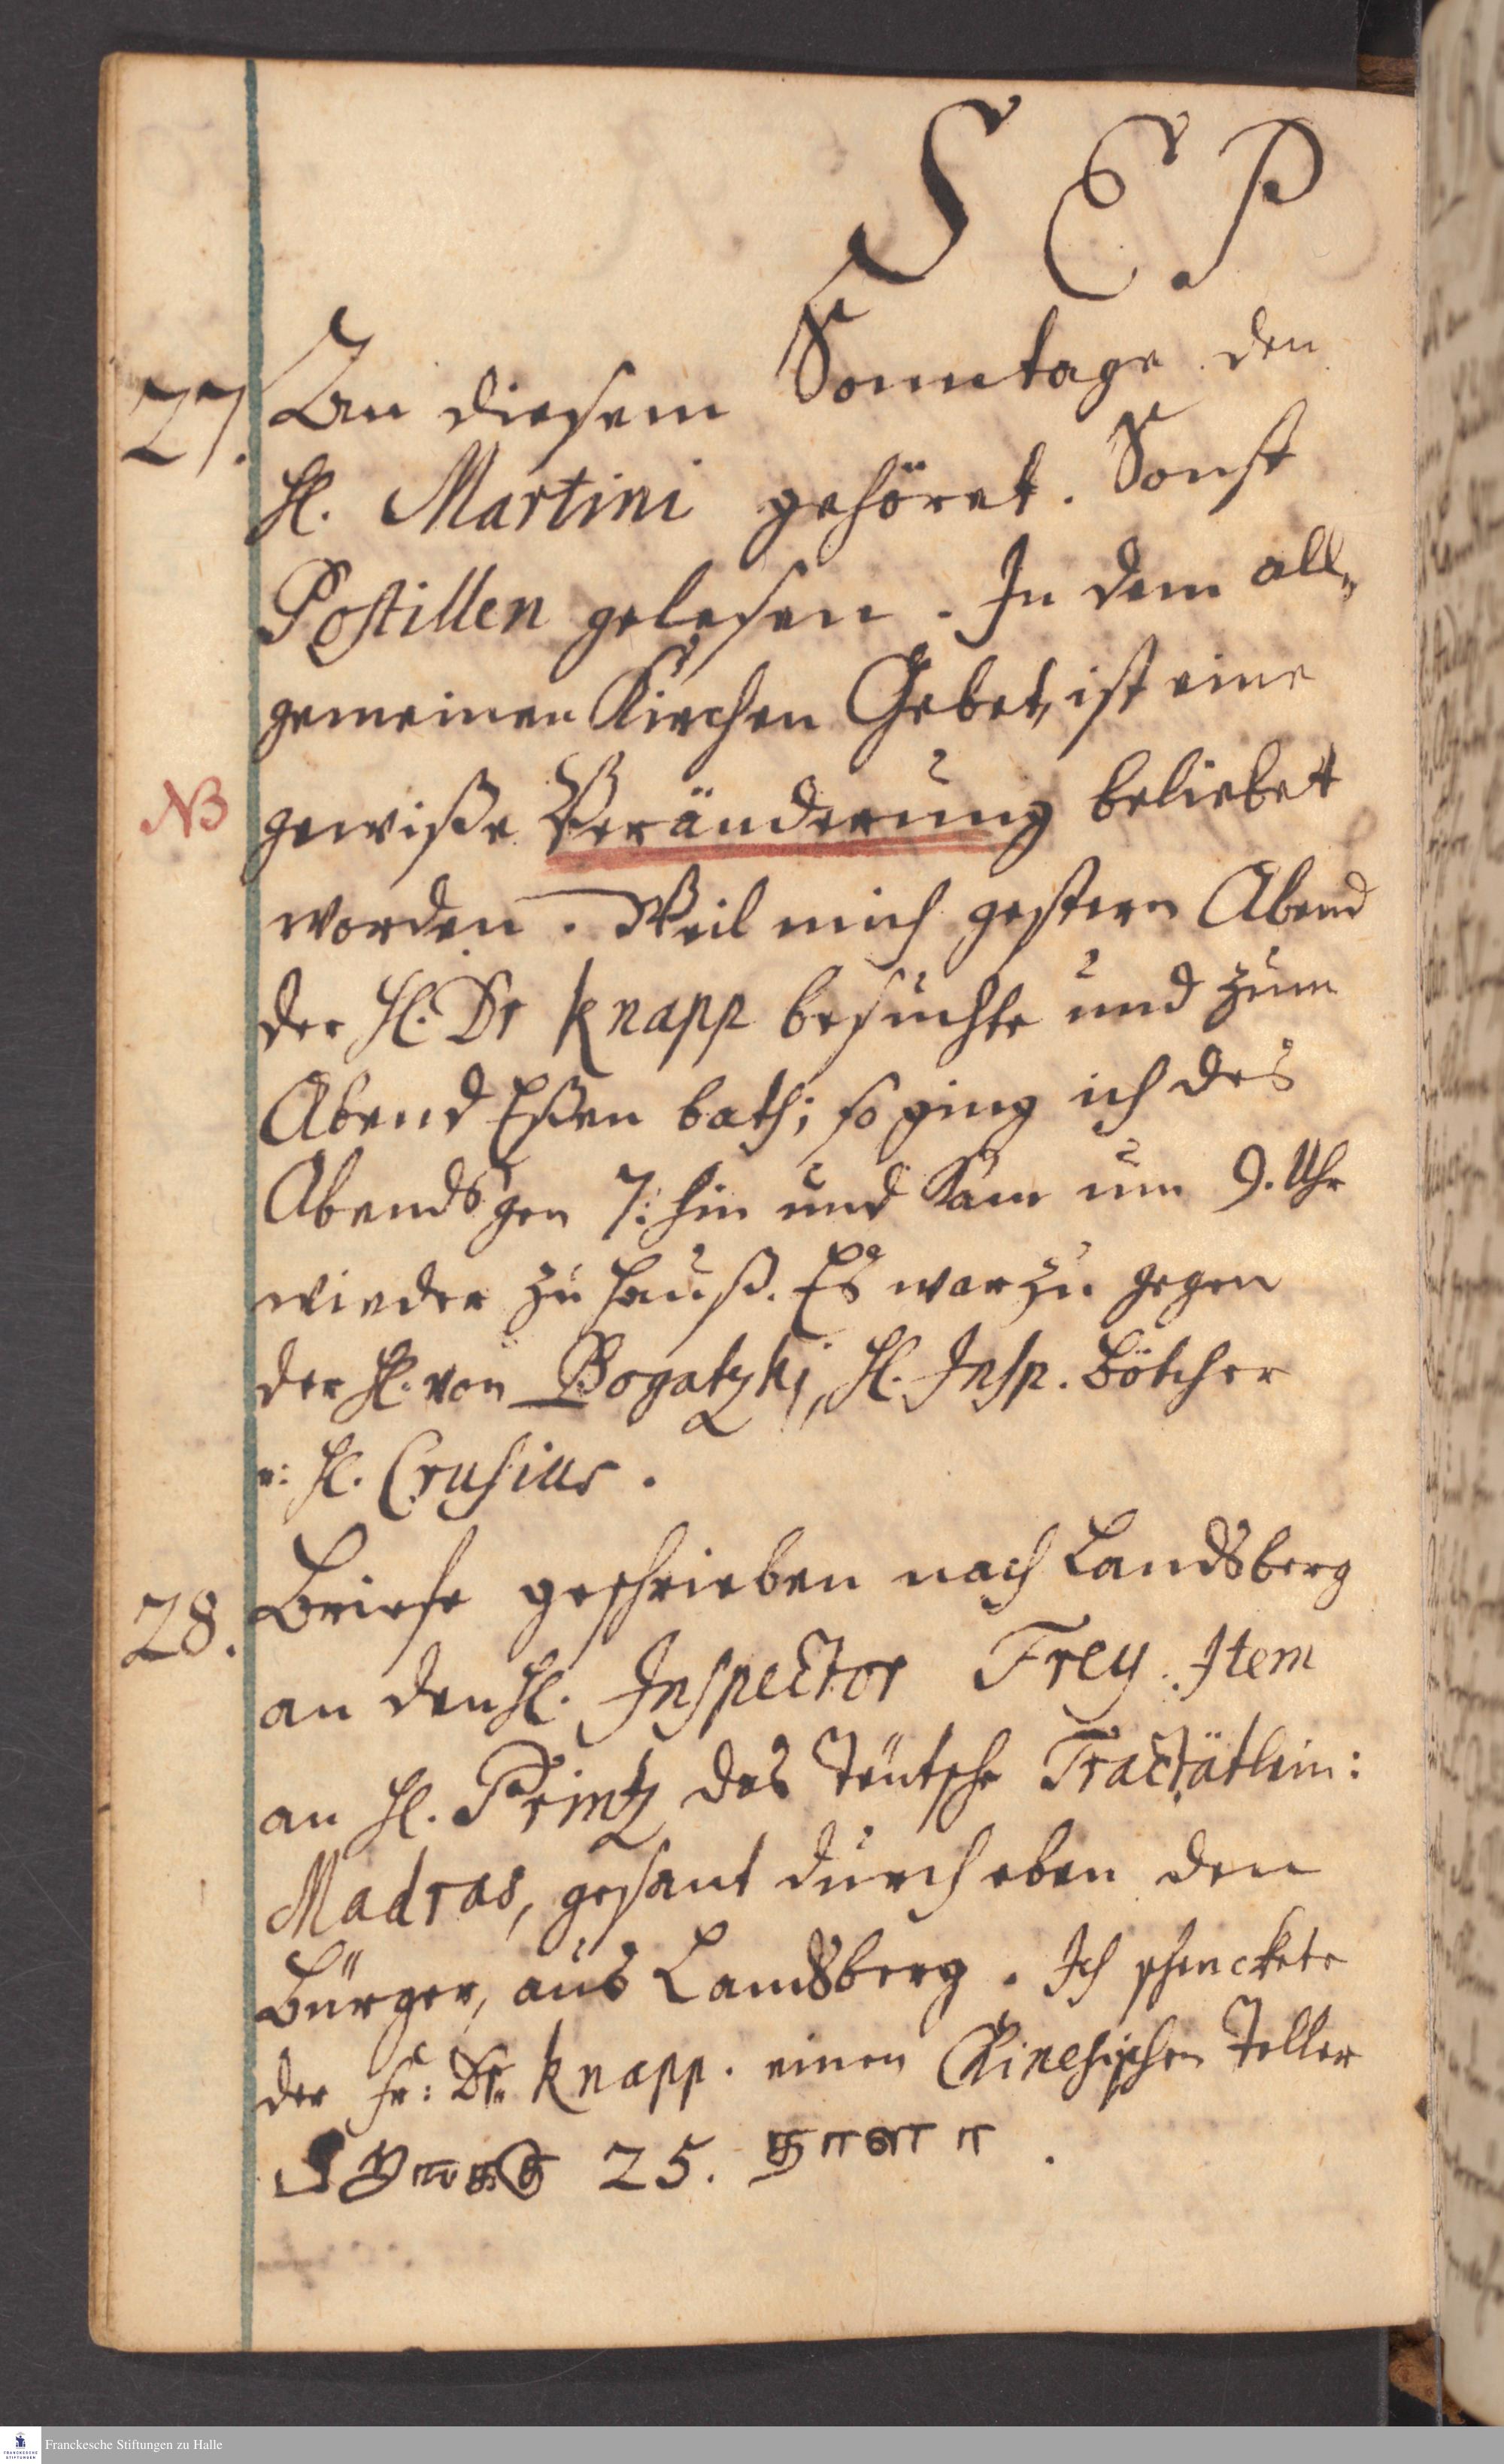 S E P
27. An diesem Sonntage den
H. Martini gehöret. Sonst
Postillen gelesen. In dem all„
gemeinen Kirchen Gebet, ist eine
NB gewiße Veränderung beliebet
worden. Weil mich gestern Abend
der H. Dr Knapp besuchte und zum
Abend Eßen bath; so ging ich des
Abends gen 7: hin und kam um 9. Uhr
wieder zu Hauß. Es war zu gegen
der H. von Bogatzki, H. Insp. Bötcher
u: H. Crusius.
28. Briefe geschrieben nach Landsberg
an den H. Inspector Frey. Item
an H. Printz das Teütsche Tractätlein:
Madras, gesant durch eben den
Bürger, aus Landsberg. Ich schenckete
der Fr: Dr. Knapp. einen Chinesischen Teller
25.
Franckesche Stiftungen zu Halle